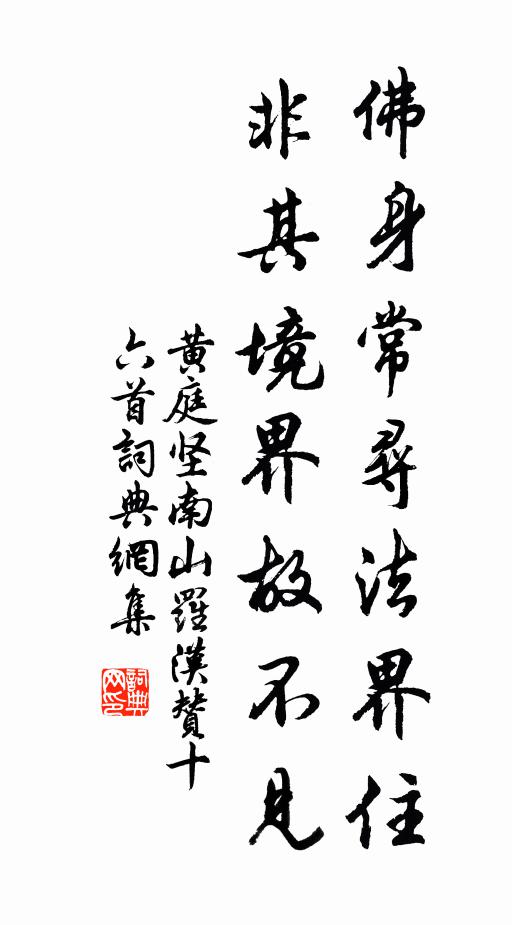 佛身常尋法界住
非其境界故不見
黄庭坚南山羅漢贊十
六首詞典網集
詞典网印